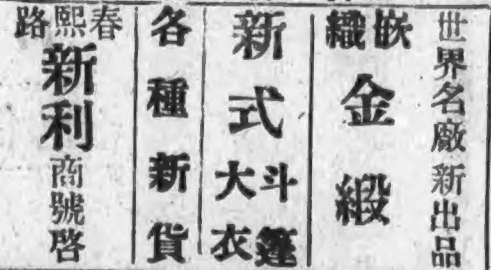 世界名廠新出品
嵌織金緞
新式斗篷大衣
各種新貨
春熙路新利商號啓